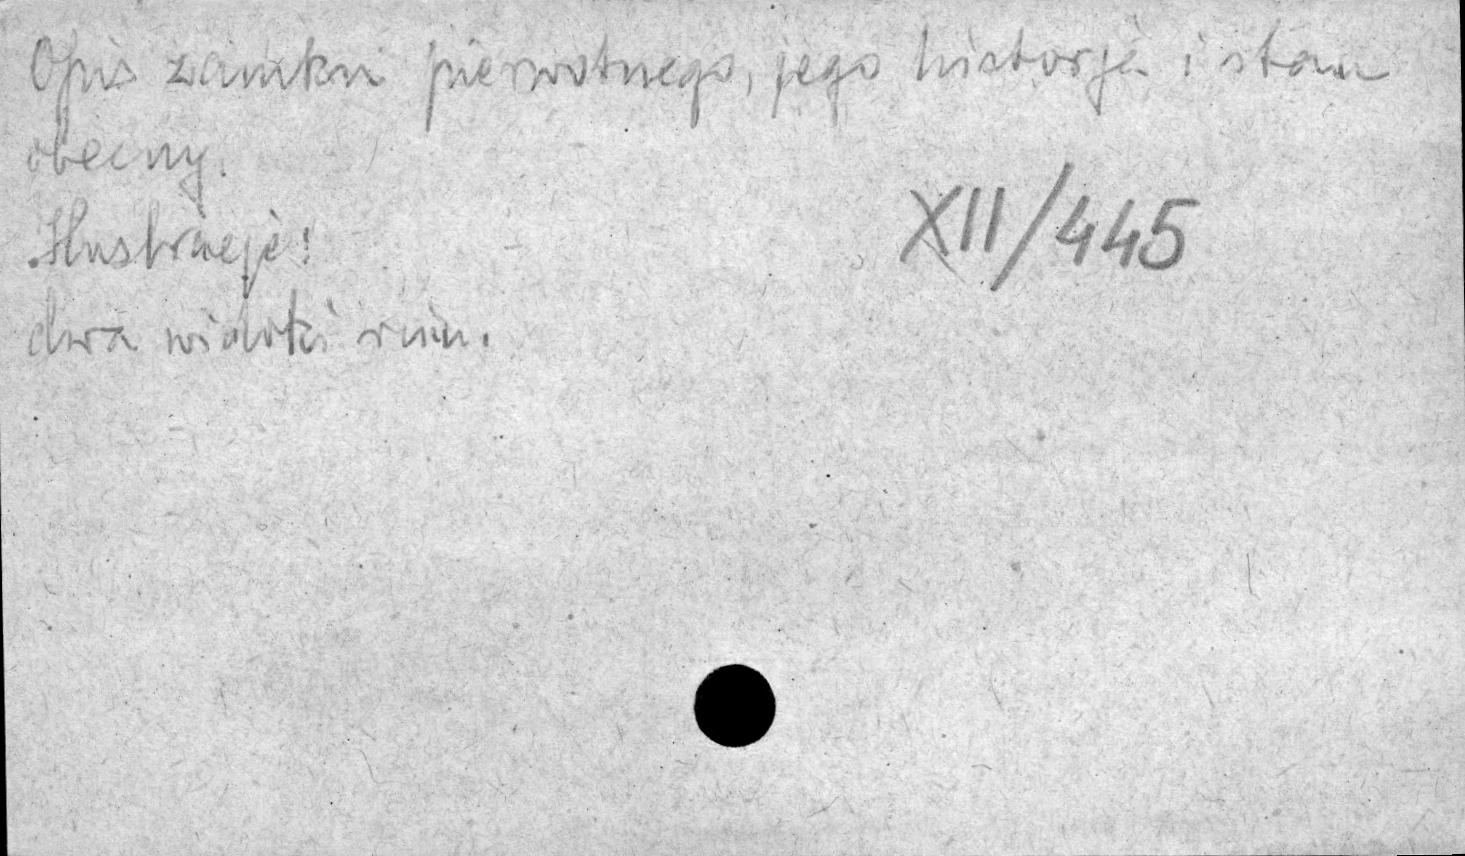 Opis zamku pierwotnego, jego historja i stan
obecny.
XII/445
Ilustracje:
dwa widoki ruin.